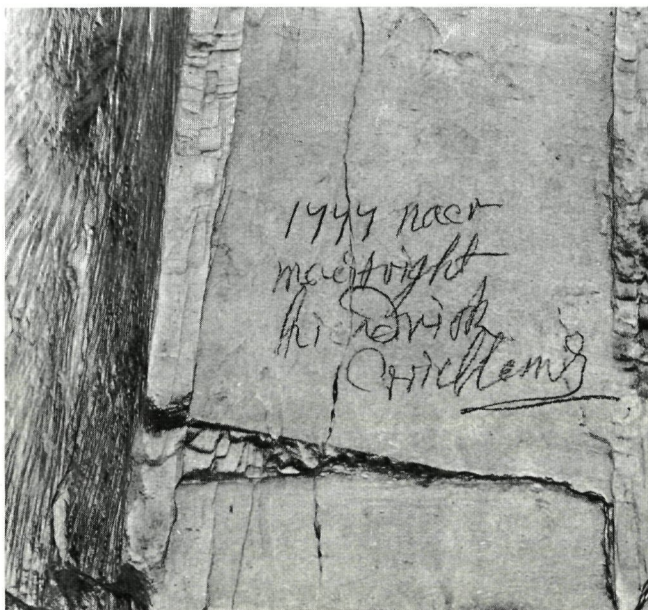 1777 naer
maestright
hiendrick
Willems